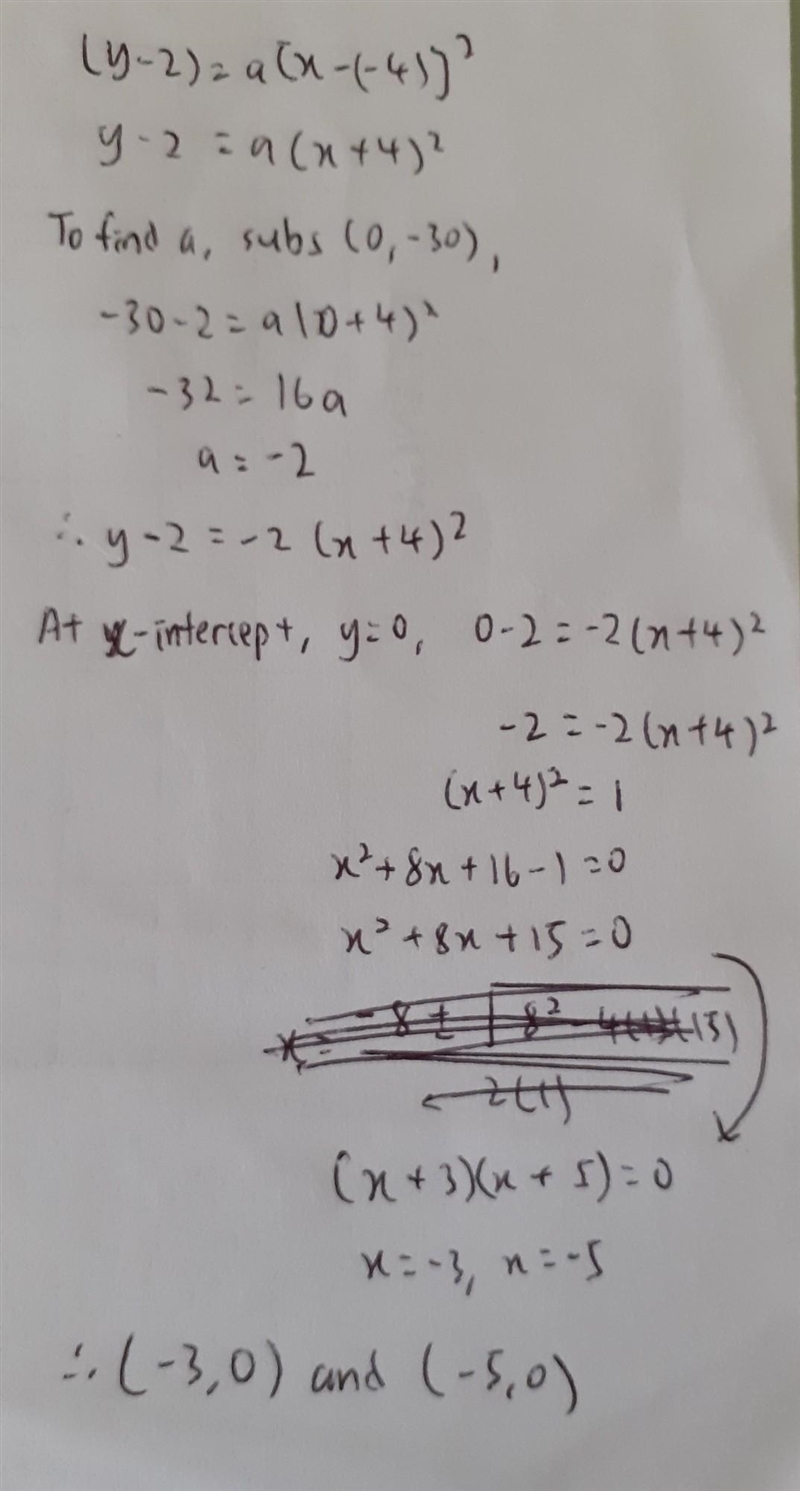 (y-2) = a[x-(-4)]²
y-2 = a(x+4)²
To find a, subs (0,-30),
-30-2 = a(0+4)²
-32 = 16a
a = -2
∴ y-2 = -2(x+4)²
At x-intercept, y=0, 0-2 = -2(x+4)²
-2 = -2(x+4)²
(x+4)² = 1
x²+8x+16-1=0
x²+8x+15=0
x = -8 ± √8²-4(1)(15)
2(1)
(x+3)(x+5)=0
x=-3, x=-5
∴ (-3,0) and (-5,0)